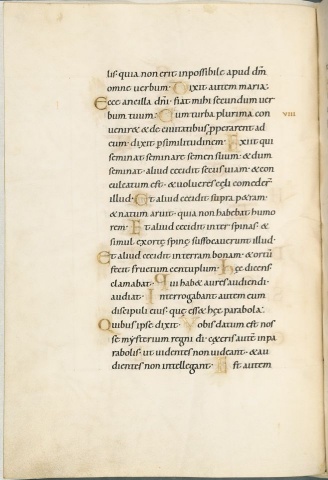 lis· quia non erit inpossibile apud dm̄
omne verbum· Dixit autem maria·
Ecce ancilla dn̄i· fiat mihi secundum ver
bum tuum· Cum turba plurima con
venirɇ & de civitatibus ꝓperarent ad
eum· dixit ꝑ similitudinem· Exiit qui
seminat seminare semen suum· & dum
seminat· aliud cecidit secus viam· & con
culcatum est· & volucres cęli comeder̄
illud· Et aliud cecidit supra pɇram·
& natum aruit· quia non habebat humo
rem· Et aliud cecidit inter spinas· &
simul exortę spinę suffocaverunt illud·
Et aliud cecidit in terram bonam· & ortū
fecit fructum centuplum· Hęc dicens
clamabat· Qui habɇ aures audiendi·
audiat· Interrogabant autem eum
discipuli eius· quę essɇ hęc parabola·
Quibus ipse dixit· Vobis datum est nos
se mysterium regni dī· cęteris autē in pa
rabolis· ut videntes non videant· & au
dientes non intellegant· Est autem
viii